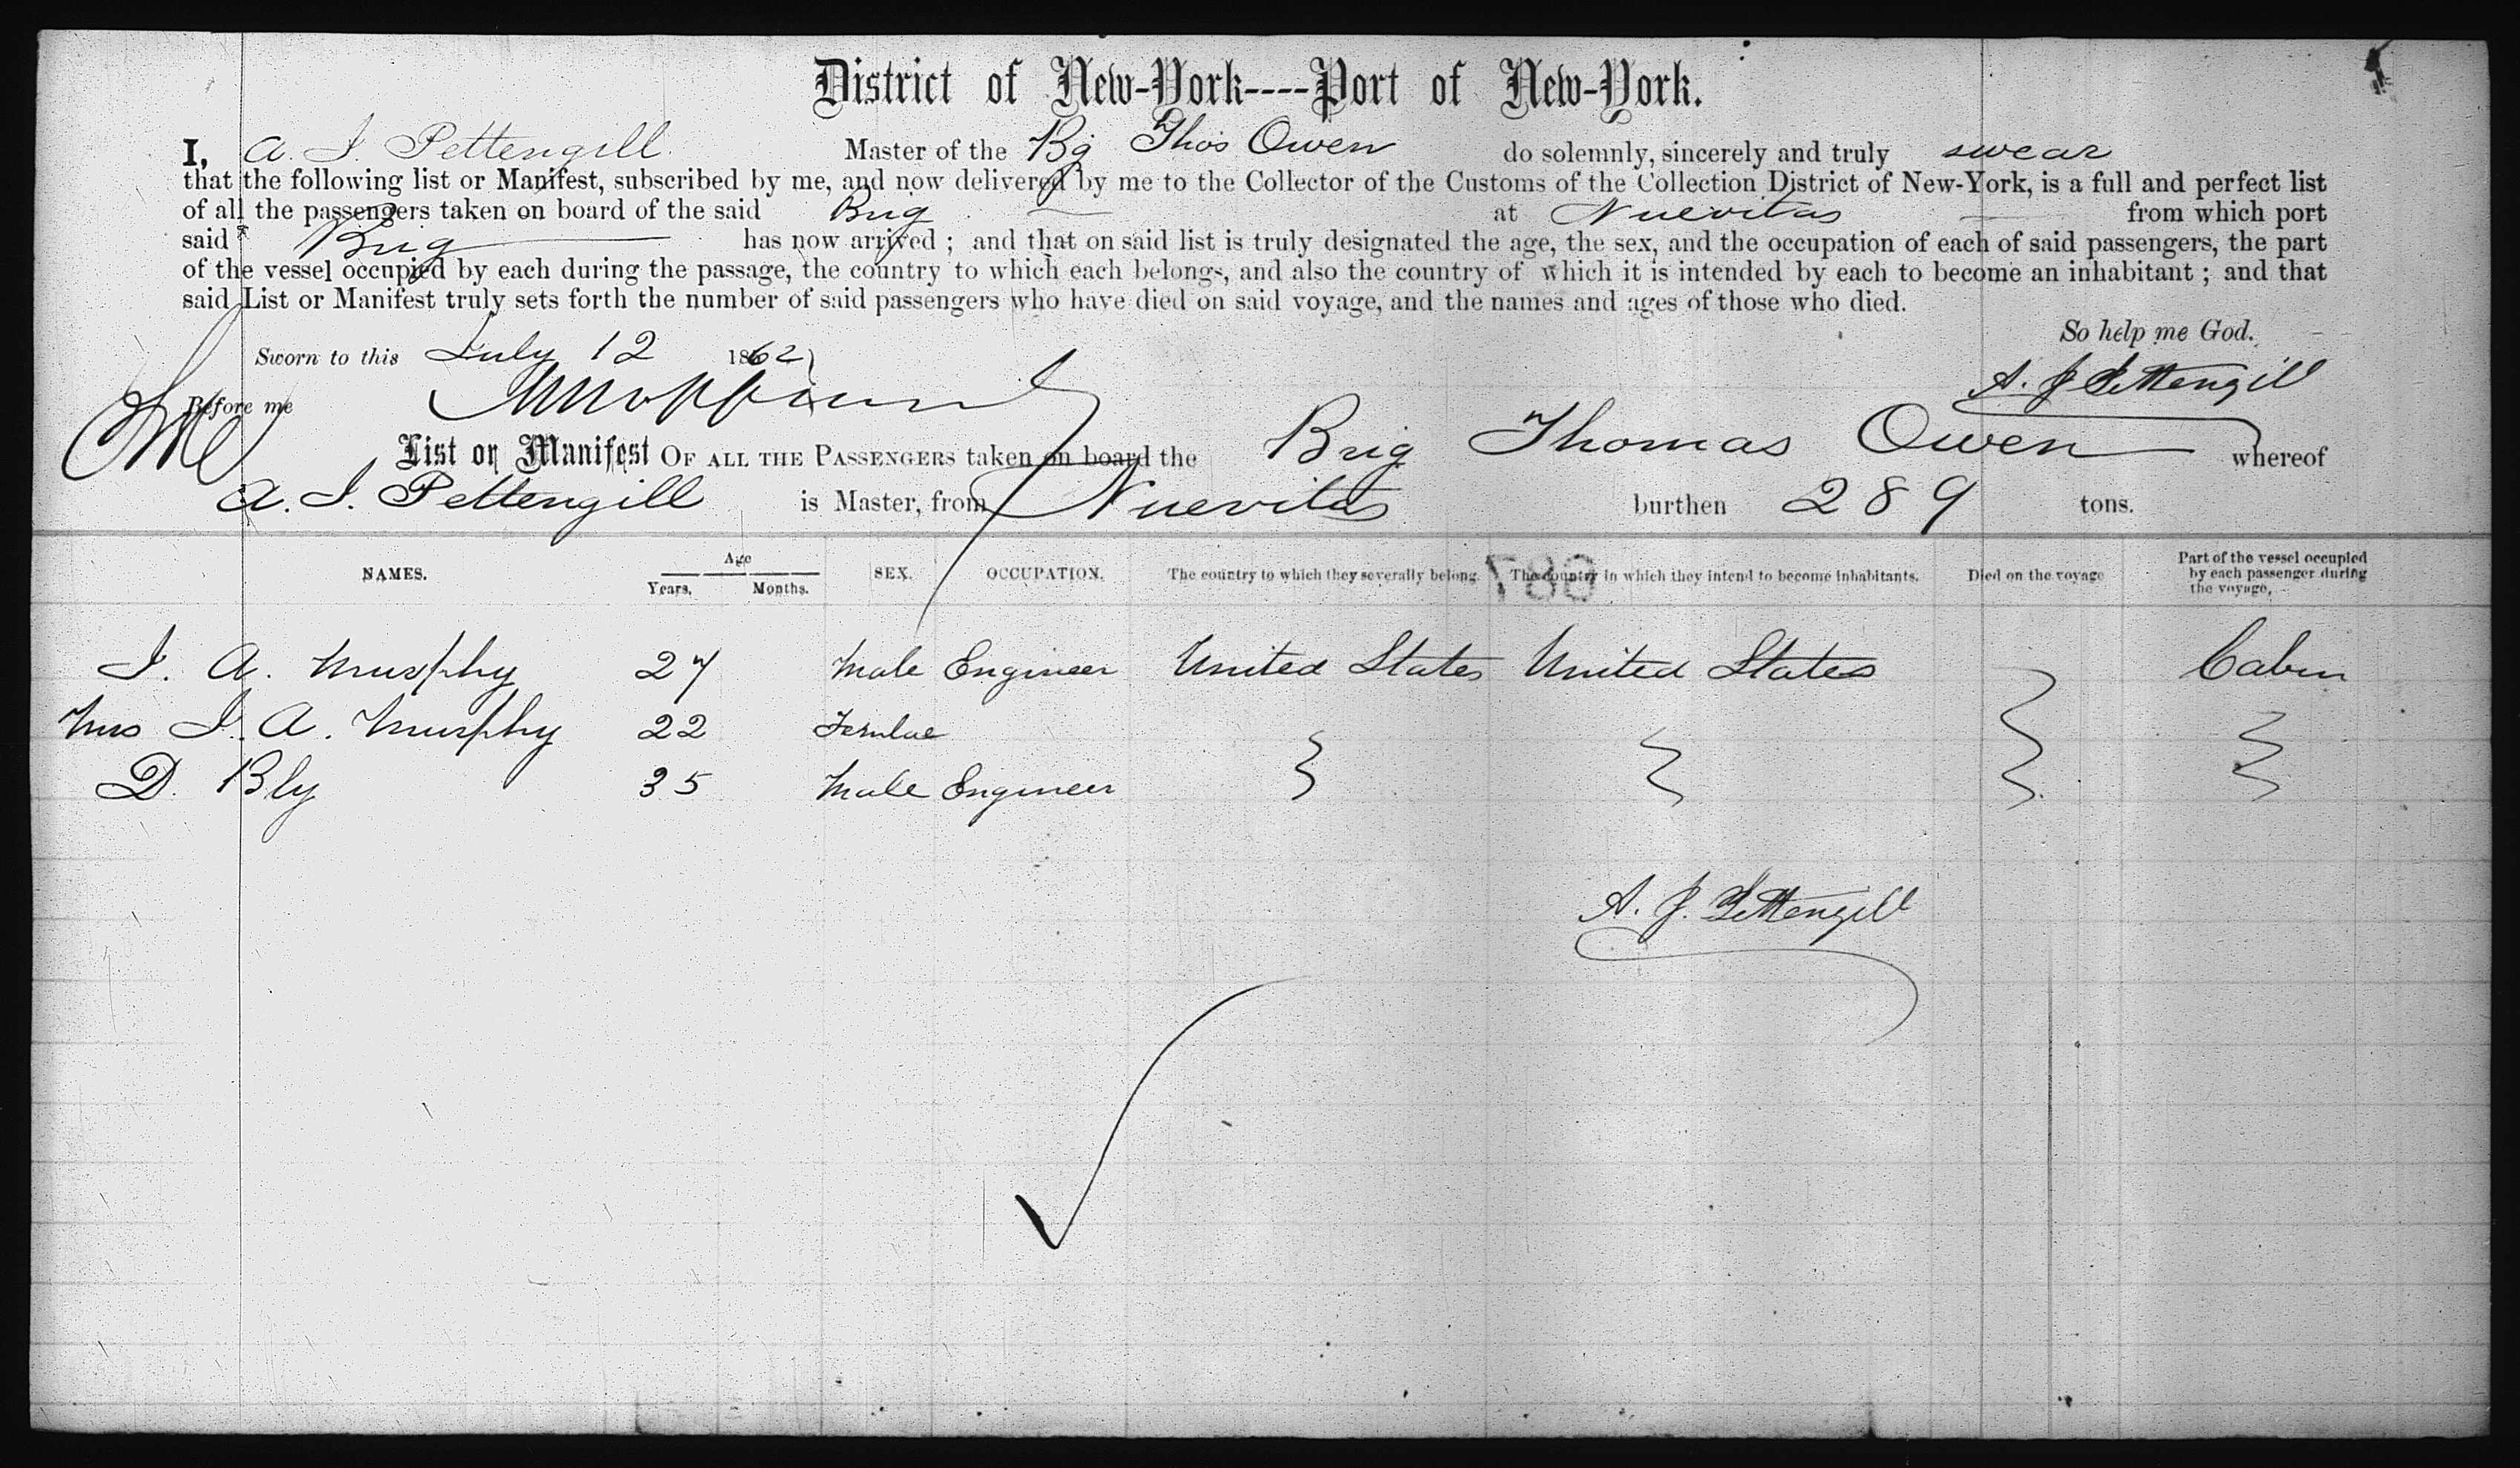 District of New-York----Port of New-York.
I, A. J. Pettengill Master of the Bg Thos Owen do solemnly, sincerely and truly swear
that the following list or Manifest, subscribed by me, and now delivered by me to the Collector of the Customs of the Collection District of New-York, is a full and perfect list
of all the passengers taken on board of the said Brig at Nuevitas from which port
said Brig has now arrived ; and that on said list is truly designated the age, the sex, and the occupation of each of said passengers, the part
of the vessel occupied by each during the passage, the country to which each belongs, and also the country of which it is intended by each to become an inhabitant ; and that
said List or Manifest truly sets forth the number of said passengers who have died on said voyage, and the names and ages of those who died.
So help me God.
Sworn to this July 12 1862
A. J. Pettengill
Before me
List or Manifest OF ALL THE PASSENGERS taken on board the Brig Thomas Owen whereof
A. J. Pettengill is Master, from Nuevitas burthen 289 tons.
NAMES. Age Years. Months. SEX. OCCUPATION. The country to which they severally belong. The country in which they intend to become inhabitants. Died on the voyage Part of the vessel occupied by each passenger during the voyage.
780
J. A. Murphy 27 Male Engineer United States United States Cabin
Mrs J. A. Murphy 22 Female
D. Bly 35 Male Engineer
A. J. Pettengill